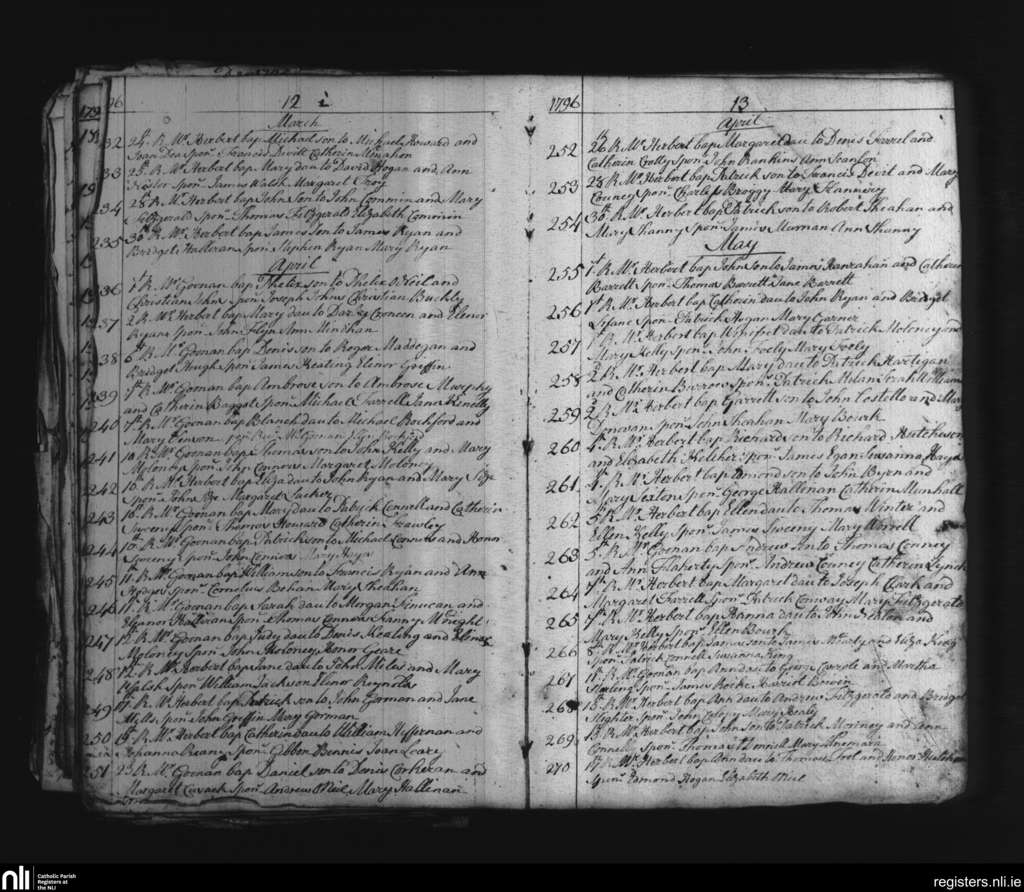 1796
12
March
232 24. R. Mr. Herbert bap. Michael son to Michael Howard and
Joan Dea Spon. Francis Divitt Catherin Minahon
233 25. R. Mr. Herbert bap. Mary dau to David Hogan and Ann
Spon. James Walsh Margaret
234 28. R. Mr. Herbert bap. John Son to John Commin and Mary
Fitzgerald Spon. Thomas Fitzgerald Elizabeth
235 30. R. Mr. Herbert bap. James Son to James Ryan and
Bridget Halleran Spon. Stephen Ryan Mary Ryan
April
236 1st. R. Mr. Goonan bap. Phelix son to Phelix O'Neil and
Christian Johns Spon. Joseph Johns Christian Buckly
237 2. R. Mr. Herbert bap. Mary dau to Darcy Croneen and Elenor
Ryan Spon. John Flyn Ann
238 6. R. Mr. Goonan bap. Denis son to Roger Maddegan and
Bridget Hough Spon. James Keating Elinor Griffin
239 R. Mr. Goonan bap. Ambrose son to Ambrose Murphy
and Catherin Baggot Spon. Michael Farrell Jane Kenelly
240 R. Mr. Goonan bap. Blanch dau to Michael Rochford and
Mary
241 10. R. Mr. Goonan bap. Thomas son to John Kelly and Mary
Spon. John Connors Margaret Moloney
242 10. R. Mr. Herbert bap. Eliza dau to John Ryan and Mary
Spon. John Margaret Tucker
243 10. R. Mr. Goonan bap. Mary dau to Patrick Connell and Catherin
Sweeny Spon. Thomas Howard Catherin Frawley
244 10. R. Mr. Goonan bap. Patrick son to Michael Connors and Honor
Sweeney Spon. John Connors Mary Hayes
245 11. R. Mr. Goonan bap. William son to Francis Ryan and Ann
Hedges Spon. Cornelius Bohan Mary Sheahan
246 11. R. Mr. Goonan bap. Sarah dau to Morgan Finucan and
Eleanor Halloran Spon. Thomas Connors Fanny Wright
247 12. R. Mr. Goonan bap. Judy dau to Denis Keating and Elinor
Moloney Spon. John Moloney Honor Geare
248 12. R. Mr. Herbert bap. Jane dau to John Miles and Mary
Walsh Spon. William Jackson Elinor Reynolds
249 17. R. Mr. Herbert bap. Patrick son to John Gorman and Jane
Mells Spon. John Griffin Mary Gorman
250 19. R. Mr. Herbert bap. Catherin dau to William Heffernan and
Johanna Ryan Spon. Gibbon Bennis Joan Leary
251 23. R. Mr. Goonan bap. Daniel son to Denis Corkeran and
Margaret Cusack Spon. Andrew O'Neil Mary Hallinan
1796
13
April
252 26. R. Mr. Herbert bap. Margaret dau to Denis Farrel and
Catherin Crotty Spon. John Rankins Ann Scanlon
253 28. R. Mr. Herbert bap. Patrick son to Francis Devit and Mary
Couney Spon. Charles Broggy Mary Flannery
254 30. R. Mr. Herbert bap. Patrick son to Robert Sheahan and
Mary Shanny Spon. James Murnan Ann Shanny
May
255 1st. R. Mr. Herbert bap. John son to James Hanrahan and Catherin
Barrett Spon. Thomas Barrett Jane Barrett
256 1st. R. Mr. Herbert bap. Catherin dau to John Ryan and Bridget
Lefane Spon. Patrick Hogan Mary Garner
257 1. R. Mr. Herbert bap. Winefret dau to Patrick Moloney and
Mary Kelly Spon. John Foely Mary Foely
258 2. R. Mr. Herbert bap. Mary dau to Patrick Hartigan
and Catherin Burrow Spon. Patrick Nolan Sarah Williams
259 2. R. Mr. Herbert bap. Garrett son to John Costello and Mary
Donovan Spon. John Sheahan Mary Bourk
260 4. R. Mr. Herbert bap. Richard son to Richard Hutcheson
and Elizabeth Keleher Spon. James Egan Susanna Hayes
261 4. R. Mr. Herbert bap. Edmond son to John Byrn and
Mary Sexton Spon. George Hallenan Catherin Munshall
262 5. R. Mr. Herbert bap. Ellen dau to Thomas Winter and
Ellen Kelly Spon. James Sweeny Mary Worrell
263 5. R. Mr. Goonan bap. Andrew son to Thomas Couney
and Ann Flaherty Spon. Andrew Couney Catherin Lynch
264 7. R. Mr. Herbert bap. Margaret dau to Joseph Clark and
Margaret Farrell Spon. Patrick Conway Mary Fitzgerald
265 7. R. Mr. Herbert bap. Hanna dau to John Sexton and
Mary Kelly Spon. Ellen Bourk
266 8. R. Mr. Herbert bap. James son to James and Eliza King
Spon. Patrick Connell Susanna King
267 11. R. Mr. Goonan bap. Ann dau to George Carrole and Martha
Sterling Spon. James Roche Harriot Bowin
268 15. R. Mr. Herbert bap. Ann dau to Andrew Fitzgerald and Bridget
Meghler Spon. John Mary Healy
269 15. R. Mr. Herbert bap. John son to Patrick Moroney and Ann
Connelly Spon. Thomas O'Donnell Mary
270 17. R. Mr. Herbert bap. Ann dau to Thomas Peol and Honor
Spon. Edmond Hogan Elizabeth Niel
nli Catholic Parish
Registers at
the NLI
registers.nli.ie